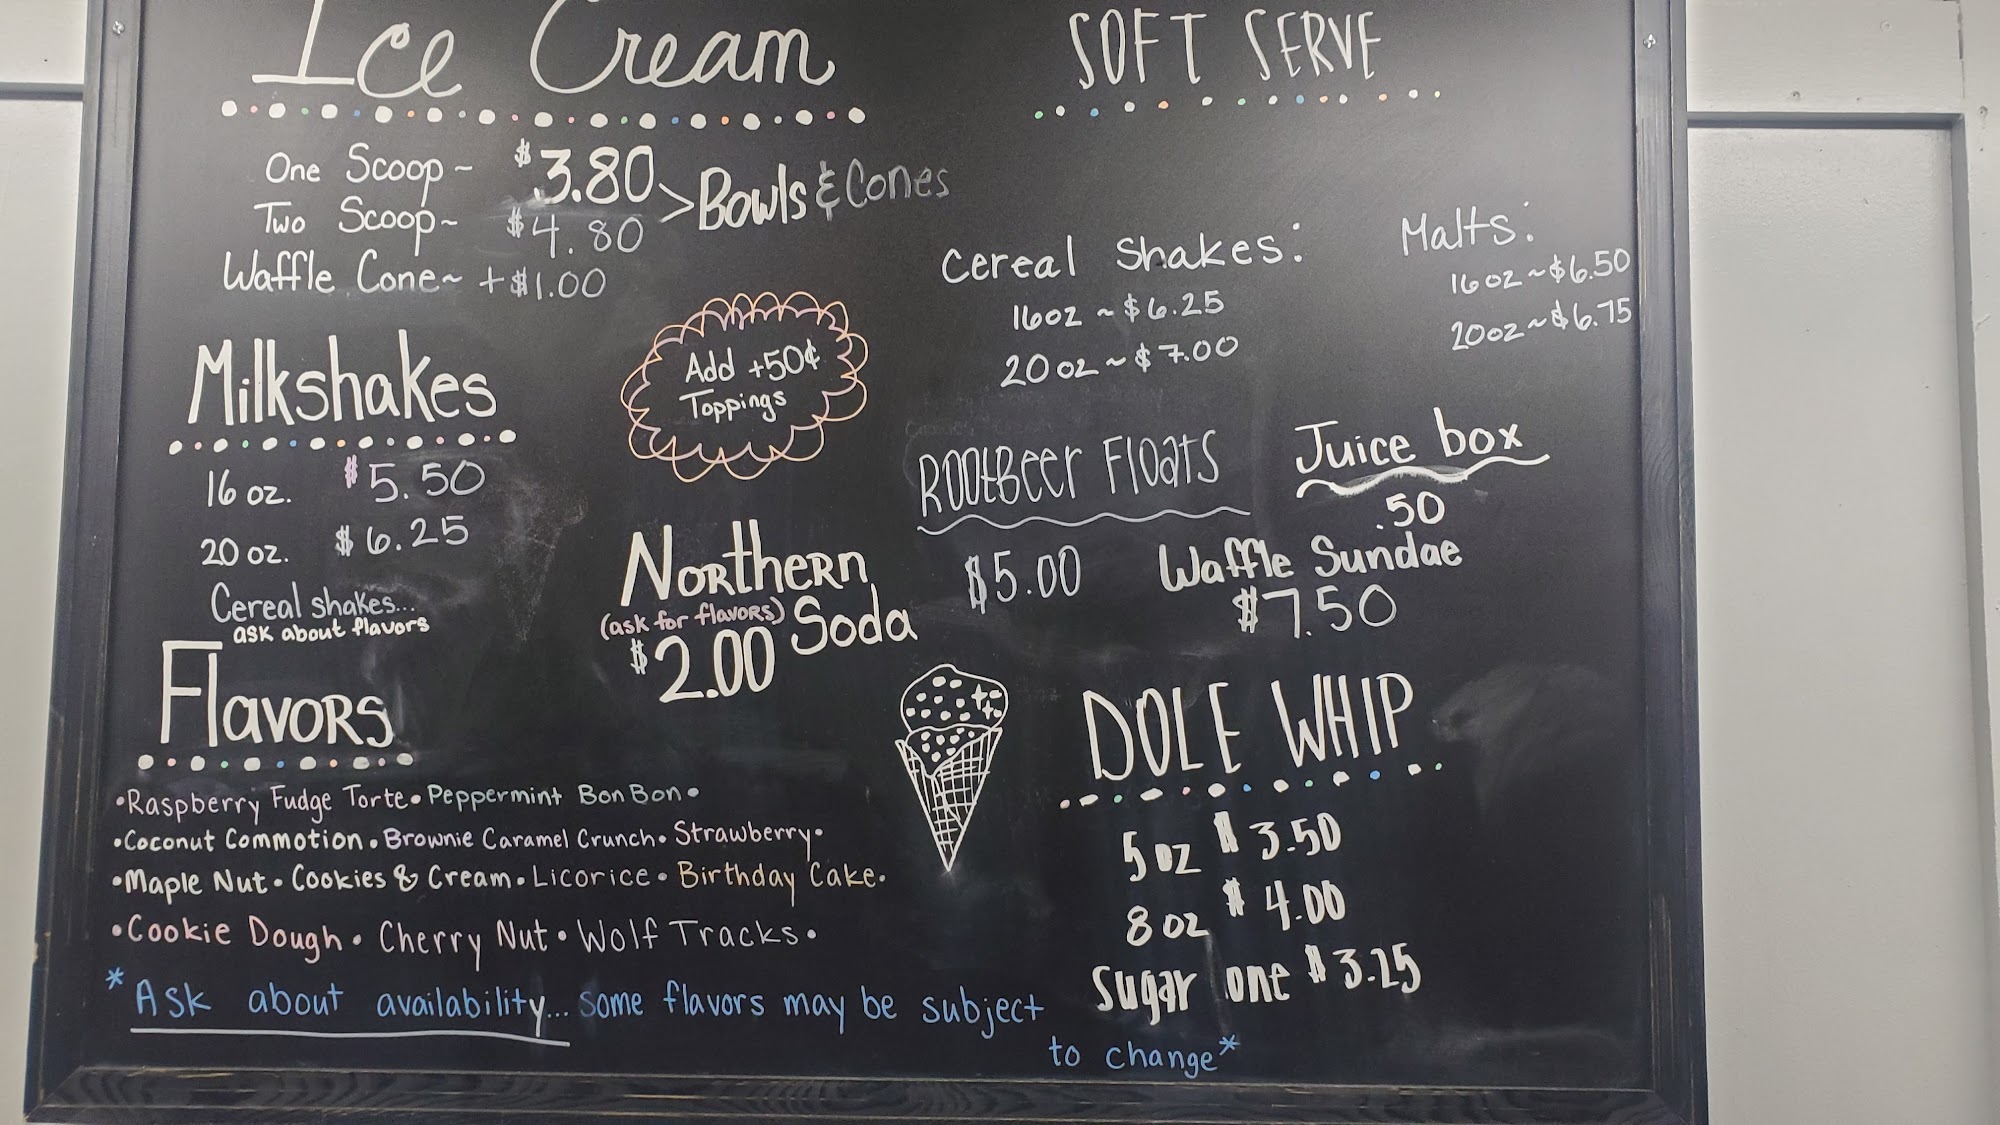 Ice Cream
One Scoop~ $3.80
Two Scoop~ $4.80
> Bowls & Cones
Waffle Cone~ +$1.00
Milkshakes
16 oz. $5.50
20 oz. $6.25
Cereal shakes...
ask about flavors
Add +50¢
Toppings
Northern
(ask for flavors) Soda
$2.00
Flavors
•Raspberry Fudge Torte•Peppermint BonBon•
•Coconut Commotion•Brownie Caramel Crunch•Strawberry•
•Maple Nut•Cookies & Cream•Licorice•Birthday Cake•
•Cookie Dough•Cherry Nut•Wolf Tracks•
*Ask about availability... some flavors may be subject
to change*
SOFT SERVE
Cereal Shakes:
16oz ~ $6.25
20oz ~ $7.00
Malts:
16oz ~ $6.50
20oz ~ $6.75
RootBeer Floats
$5.00
Juice box
.50
Waffle Sundae
$7.50
DOLE WHIP
5 oz $3.50
8 oz $4.00
Sugar one $3.25